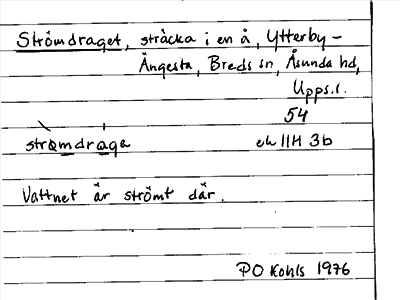 Strömdraget, sträcka i en å, Ytterby-
Ängesta, Breds sn, Åsunda hd,
Upps.l.
54
strømdragə ek 11H 3b
Vattnet är strömt där.
PO Kohls 1976